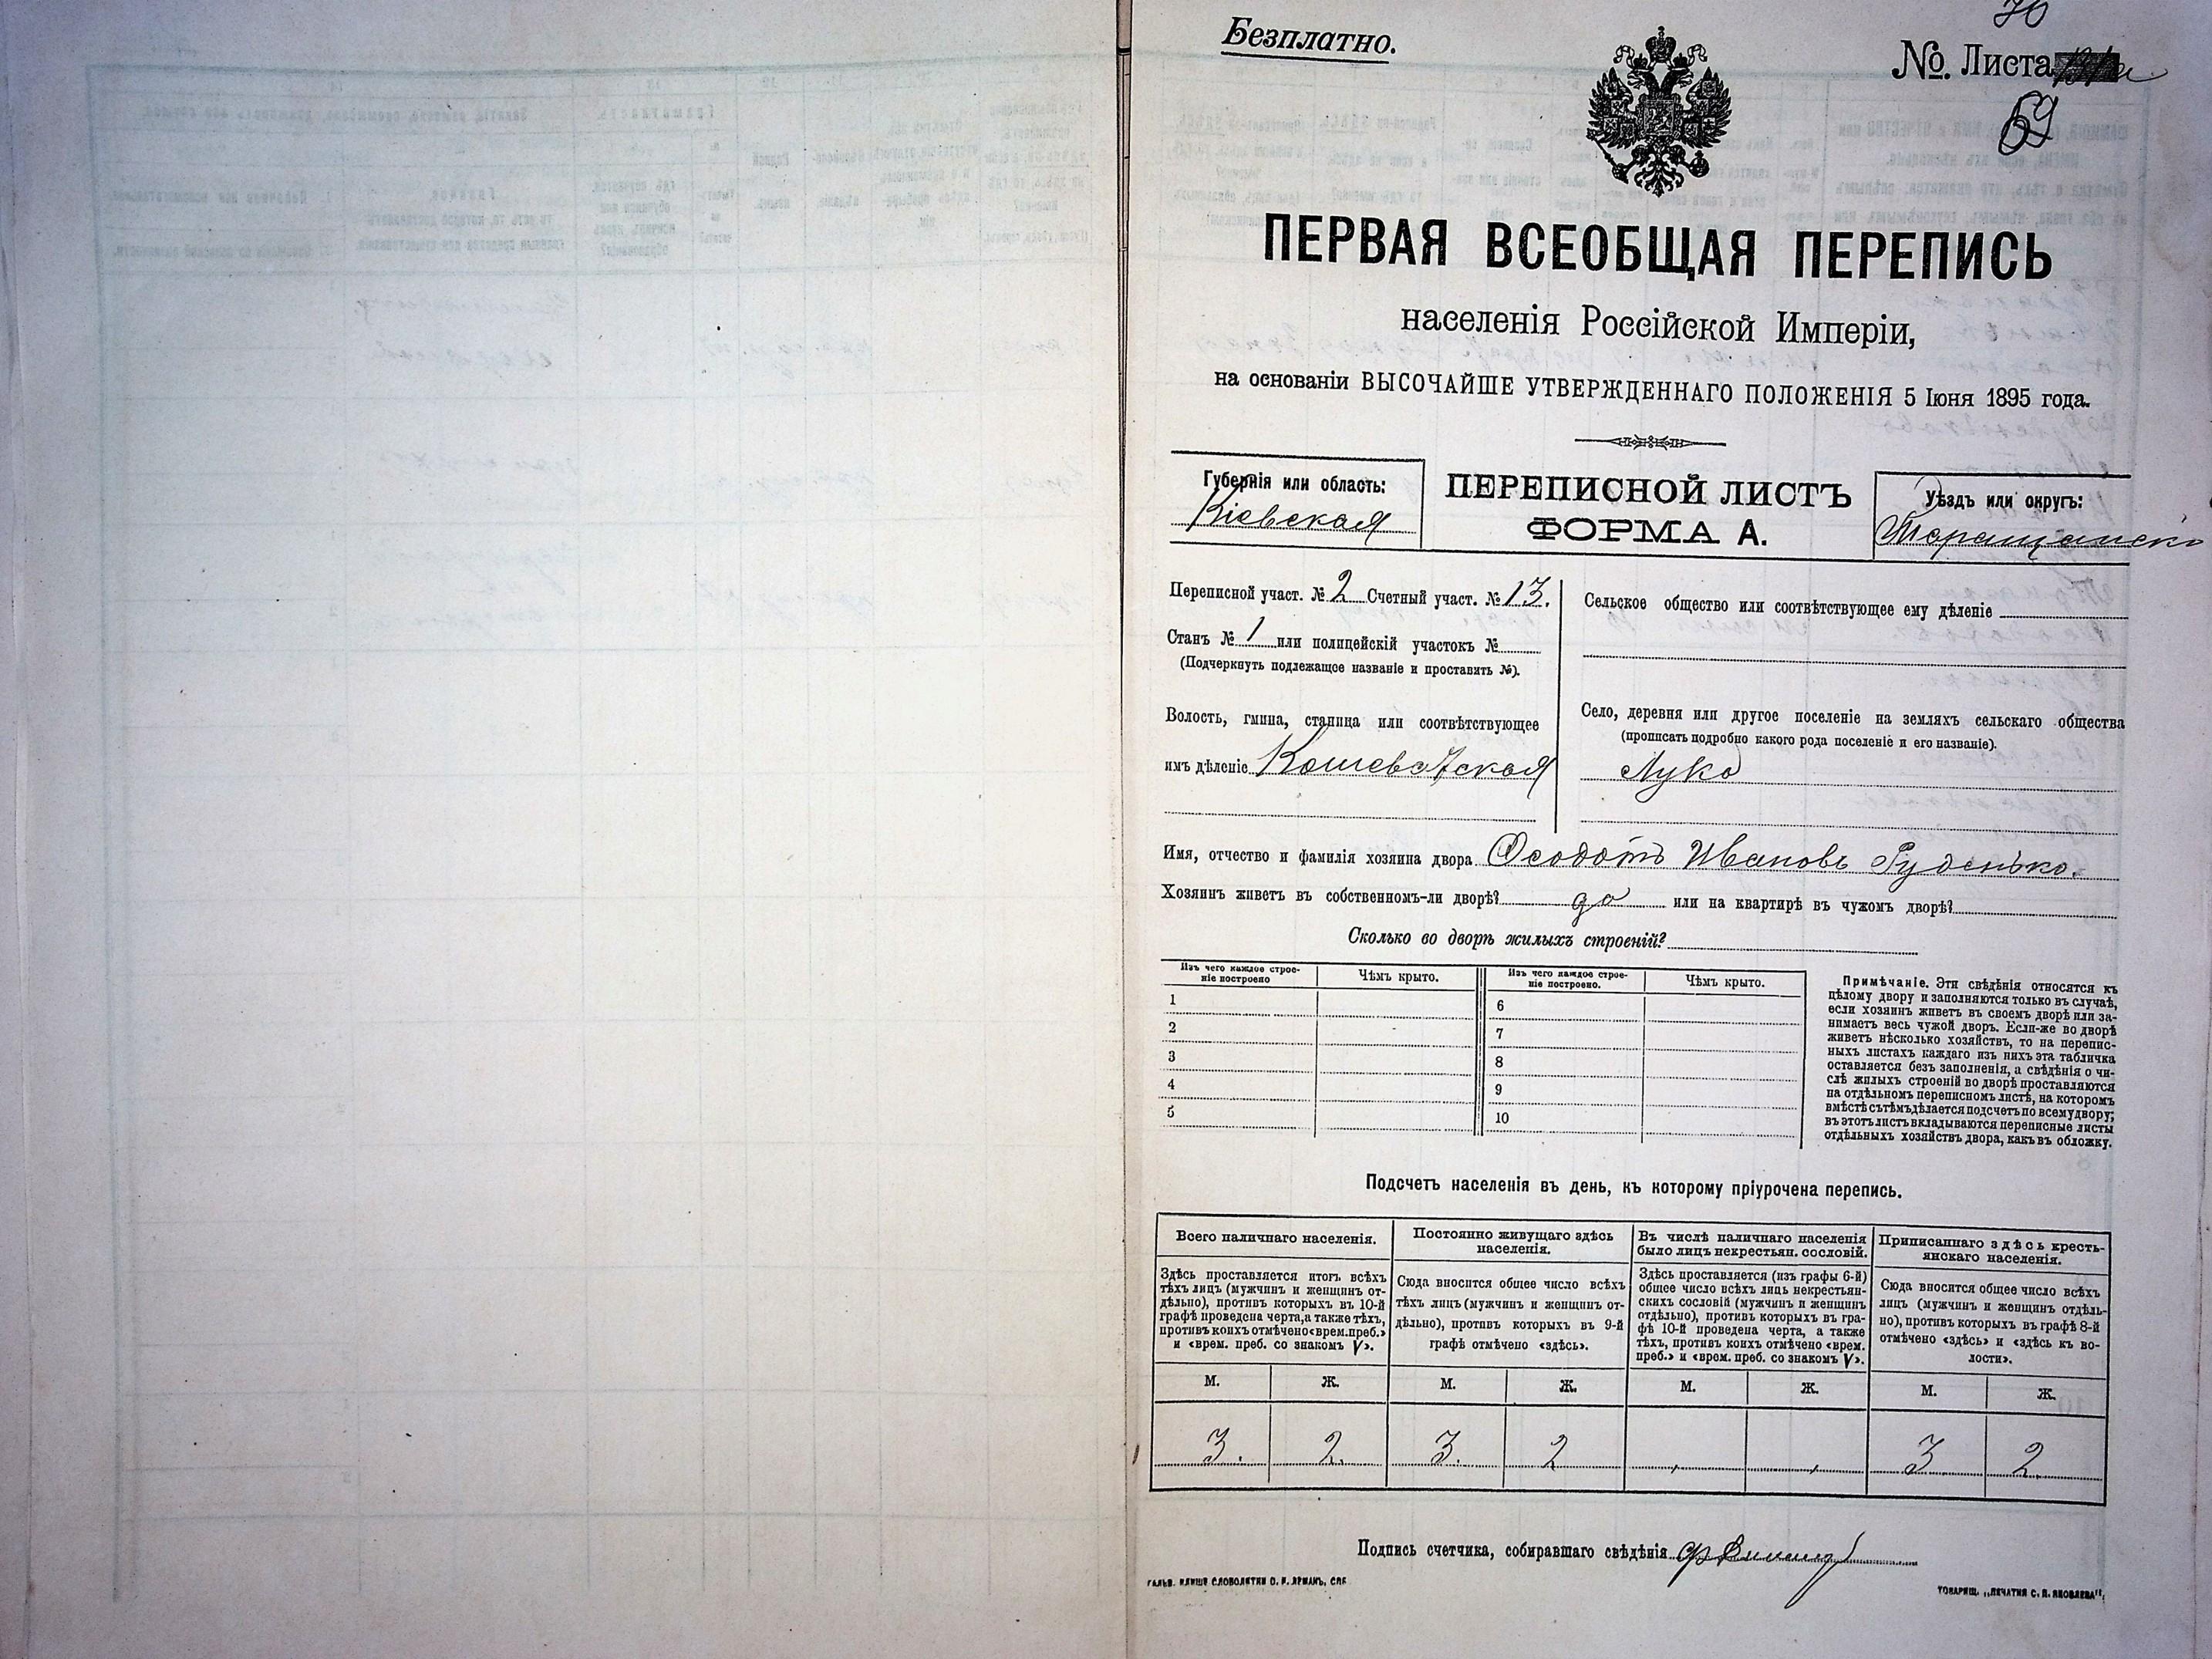 Безплатно.
70
№. Листа
69
ПЕРВАЯ ВСЕОБЩАЯ ПЕРЕПИСЬ
населенія Россійской Имперіи,
на основаніи ВЫСОЧАЙШЕ УТВЕРЖДЕННАГО ПОЛОЖЕНІЯ 5 Іюня 1895 года.
Губернія или область:
Кіевская
ПЕРЕПИСНОЙ ЛИСТЪ
ФОРМА А.
Уѣздъ или округъ:
Таращанскій
Переписной участ. № 2 Счетный участ. № 13.
Станъ № 1 или полицейскій участокъ №
(Подчеркнуть подлежащое названіе и проставить №).
Волость, гмина, станица или соотвѣтствующее
имъ дѣленіе Кошеватская
Сельское общество или соотвѣтствующее ему дѣленіе
Село, деревня или другое поселеніе на земляхъ сельскаго общества
(прописать подробно какого рода поселеніе и его названіе).
Лука
Имя, отчество и фамилія хозяина двора Феодотъ Ивановъ Руденько.
Хозяинъ живетъ въ собственномъ-ли дворѣ? да или на квартирѣ въ чужомъ дворѣ?
Сколько во дворѣ жилыхъ строеній?
Изъ чего каждое строе-
ніе построено
Чѣмъ крыто.
Изъ чего каждое строе-
ніе построено.
Чѣмъ крыто.
1
2
3
4
5
6
7
8
9
10
Примѣчаніе. Эти свѣдѣнія относятся къ
цѣлому двору и заполняются только въ случаѣ,
если хозяинъ живетъ въ своемъ дворѣ или за-
нимаетъ весь чужой дворъ. Если-же во дворѣ
живетъ нѣсколько хозяйствъ, то на перепис-
ныхъ листахъ каждаго изъ нихъ эта табличка
оставляется безъ заполненія, а свѣдѣнія о чи-
слѣ жилыхъ строеній во дворѣ проставляются
на отдѣльномъ переписномъ листѣ, на которомъ
вмѣстѣ съ тѣмъ дѣлается подсчетъ по всему двору;
въ этотъ листъ вкладываются переписные листы
отдѣльныхъ хозяйствъ двора, какъ въ обложку.
Подсчетъ населенія въ день, къ которому пріурочена перепись.
Всего наличнаго населенія.
Здѣсь проставляется итогъ всѣхъ
тѣхъ лицъ (мужчинъ и женщинъ от-
дѣльно), противъ которыхъ въ 10-й
графѣ проведена черта, а также тѣхъ,
противъ коихъ отмѣчено «врем. преб.»
и «врем. преб. со знакомъ V».
Постоянно живущаго здѣсь
населенія.
Сюда вносится общее число всѣхъ
тѣхъ лицъ (мужчинъ и женщинъ от-
дѣльно), противъ которыхъ въ 9-й
графѣ отмѣчено «здѣсь».
Въ числѣ наличнаго населенія
было лицъ некрестьян. сословій.
Здѣсь проставляется (изъ графы 6-й)
общее число всѣхъ лицъ некрестьян-
скихъ сословій (мужчинъ и женщинъ
отдѣльно), противъ которыхъ въ гра-
фѣ 10-й проведена черта, а также
тѣхъ, противъ коихъ отмѣчено «врем.
преб.» и «врем. преб. со знакомъ V».
Приписаннаго здѣсь кресть-
янскаго населенія.
Сюда вносится общее число всѣхъ
лицъ (мужчинъ и женщинъ отдѣль-
но), противъ которыхъ въ графѣ 8-й
отмѣчено «здѣсь» и «здѣсь къ во-
лости».
М. Ж. М. Ж. М. Ж. М. Ж.
3. 2. 3. 2 3 2
Подпись счетчика, собиравшаго свѣдѣнія
ГАЛЬВ. КЛИШЕ СЛОВОЛИТНИ О. И. ЛЕМАНЪ, СПБ
ТОВАРИЩ. „ПЕЧАТНЯ С. П. ЯКОВЛЕВА".